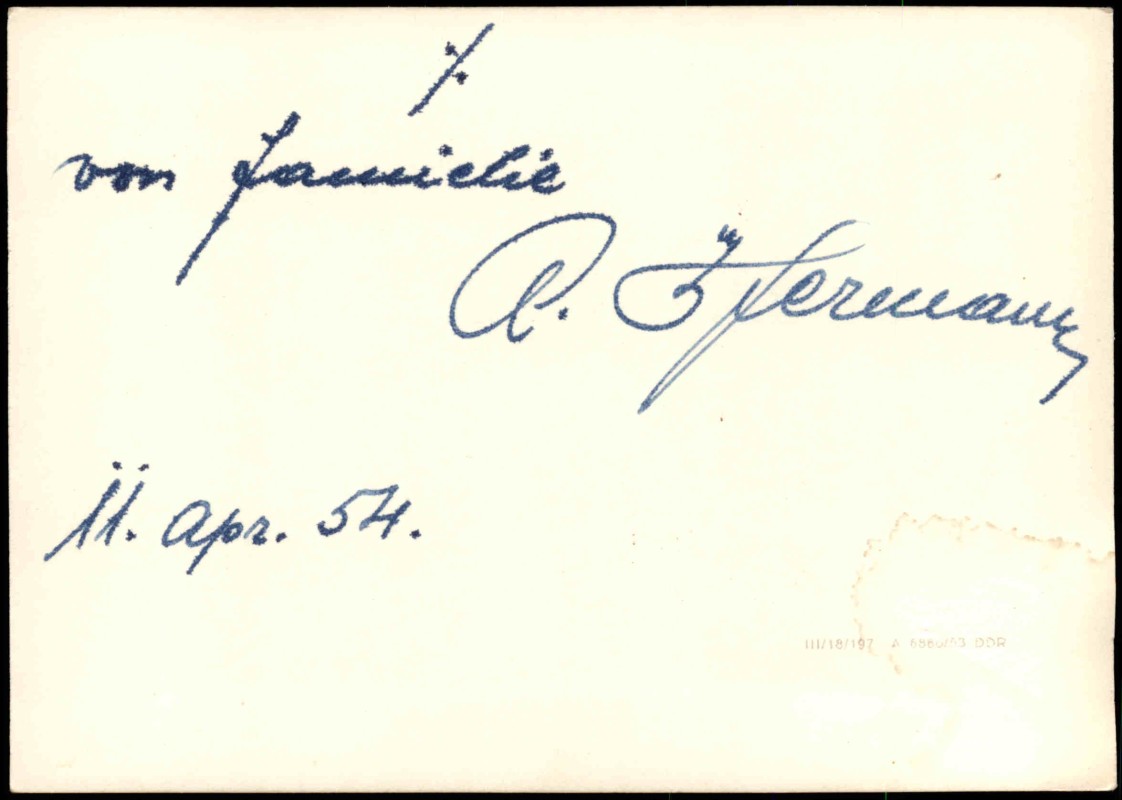 ·/.
von Familie
11. Apr. 54.
III/18/197 A 6880/53 DDR